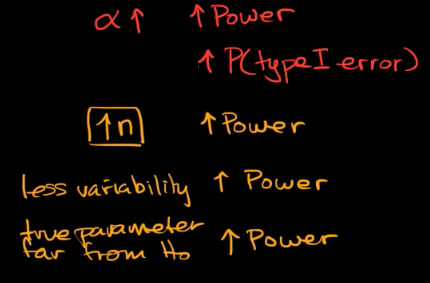 α↑ ↑Power
↑P(type I error)
↑n ↑Power
less variability ↑ Power
true parameter
far from Ho ↑Power